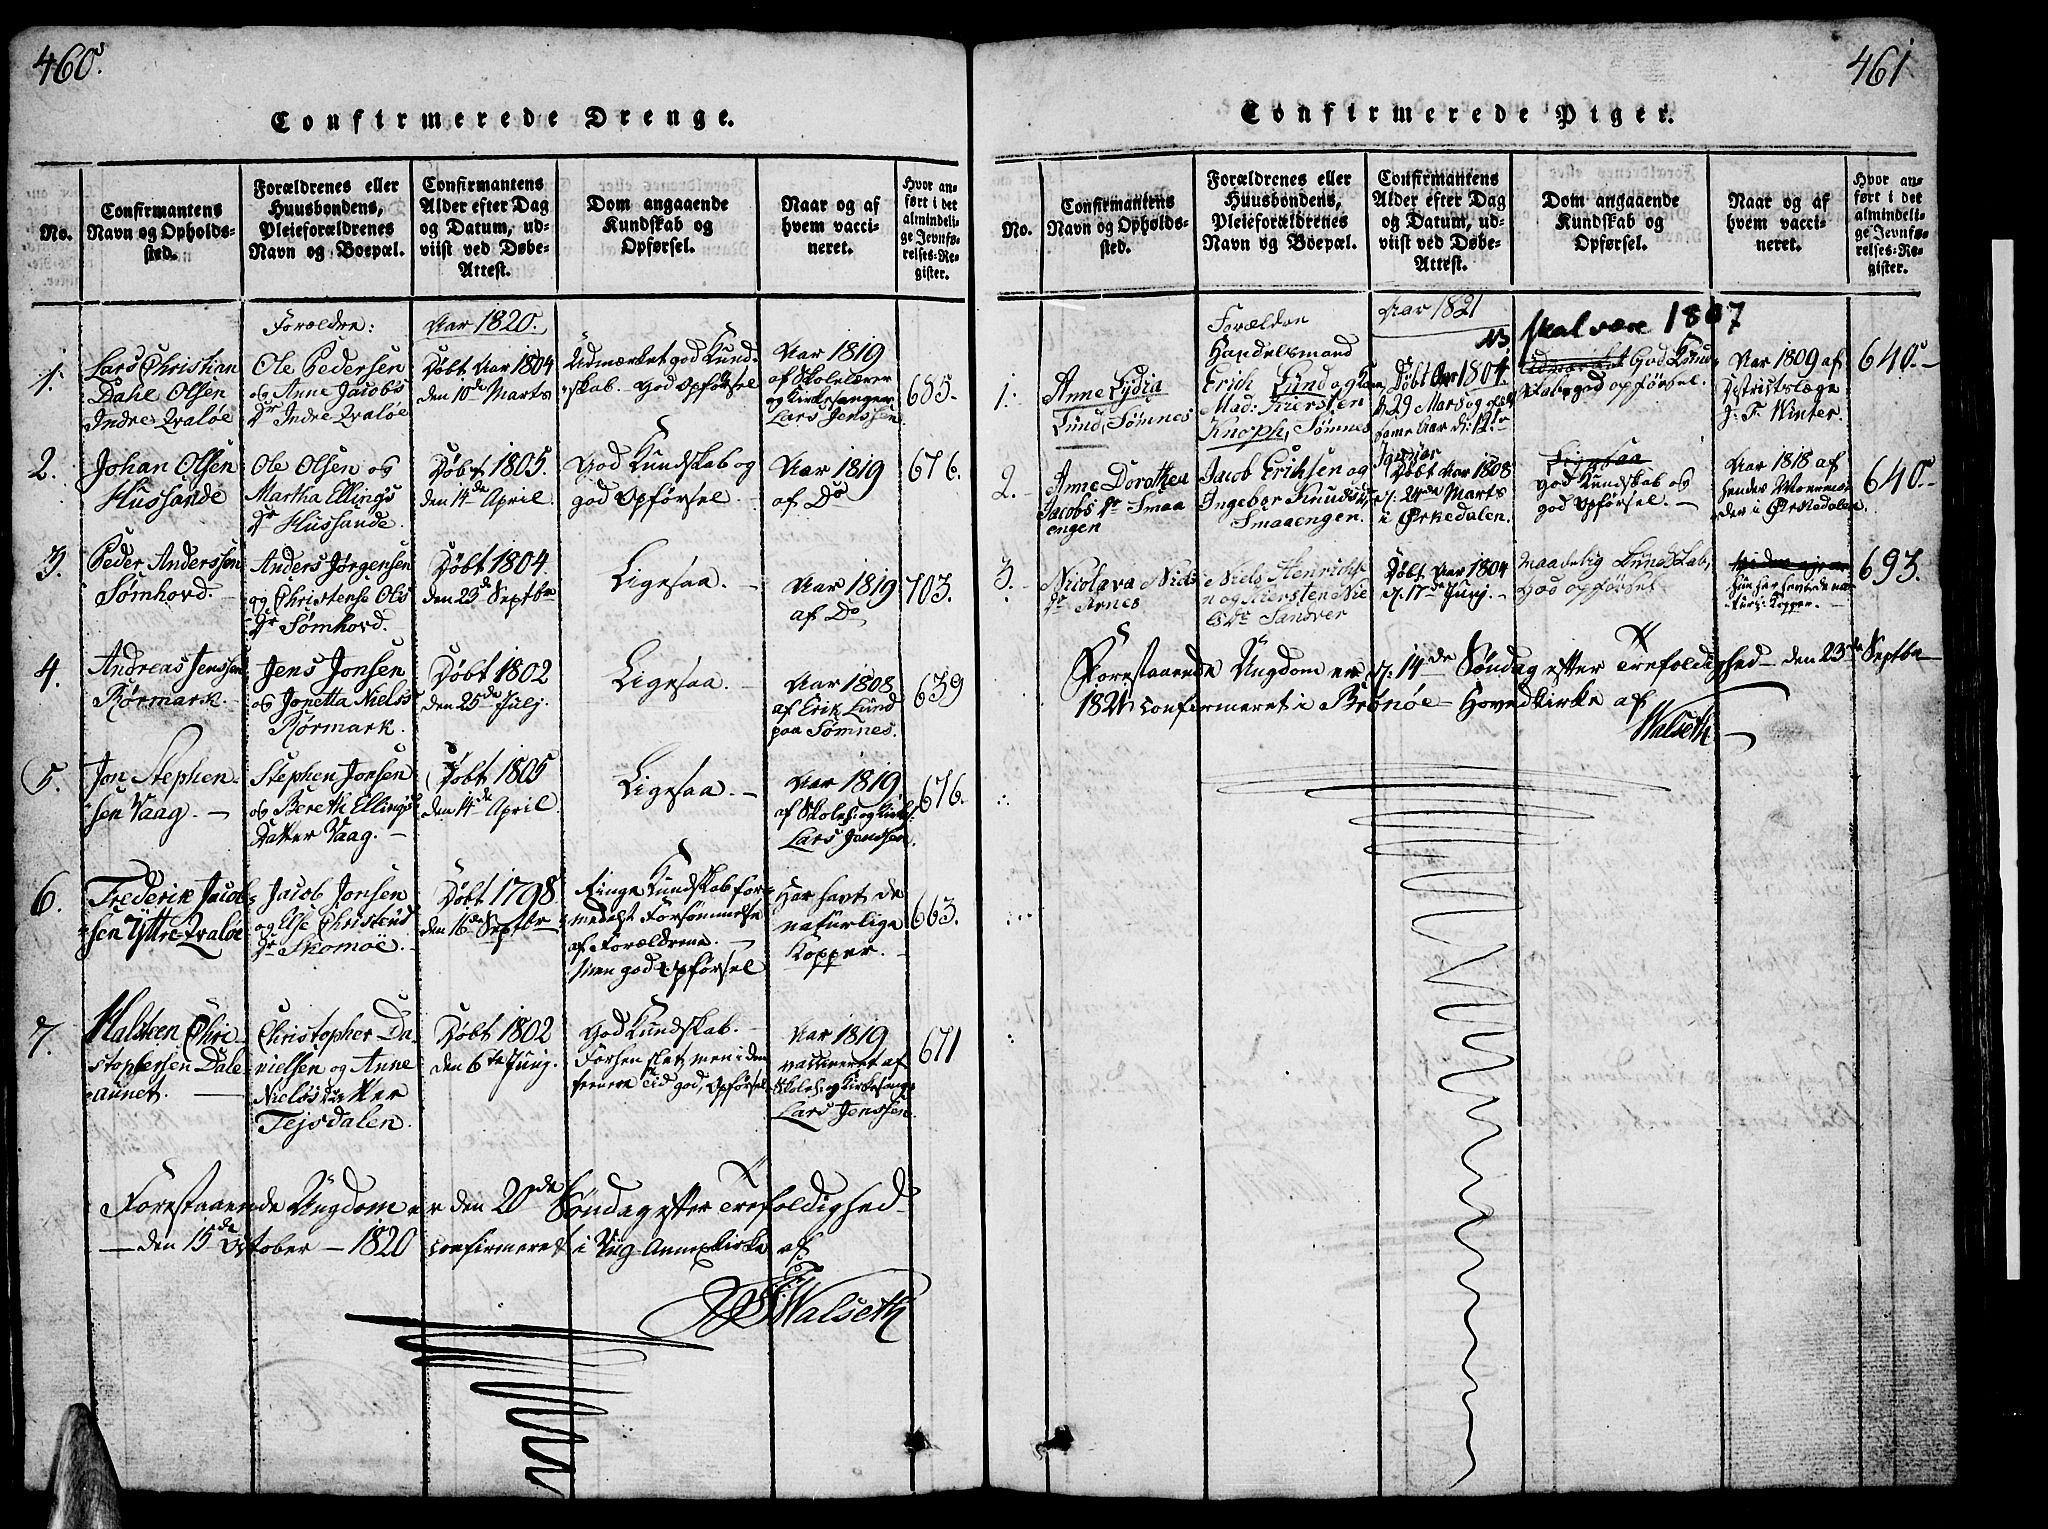 460.
Confirmerede Drenge.
No.
Confirmantens
Navn og Opholds-
sted.
Forældrenes eller
Huusbondens,
Pleieforældrenes
Navn og Boepæl.
Confirmantens
Alder efter Dag
og Datum, ud-
viist ved Døbe-
Attest.
Dom angaaende
Kundskab og
Opførsel.
Naar og af
hvem vacci-
neret.
Hvor an-
ført i det
almindeli-
ge Jevnfø-
relses-Re-
gister.
Forældre:
Aar 1820.
1.
Lars Christian
Dahl Olsen
Indre Qvaløe
Ole Pedersen
og Anne Jacobs
Dr Indre Qvaløe
Døbt Aar 1804
den 10de Marts
Udmærket god Kund-
skab. God Opførsel
Aar 1819
af Skolelærer
og Kirkesanger
Lars Jenssen
685.
2.
Johan Olsen
Hussande
Ole Olsen og
Martha Ellings
Dr Hussande.
Døbt 1805.
den 14de April.
God Kundskab og
god Opførsel.
Aar 1819
af Do
676.
3.
Peder Anderssen
Sømhovd.
Anders Jørgensen
og Christense Ols
Dr Sømhovd.
Døbt 1804.
den 23de Septbr
Ligesaa.
Aar 1819
af Do
703.
4.
Andreas Jenssen
Rørmark.
Jens Jonsen
og Jonetta Niels
Rørmark.
Døbt 1802
den 25de Julj.
Ligesaa.
Aar 1808
af Erik Lund
paa Sømnes.
639
5.
Jon Stephen-
sen Vaag.
Stephen Jonsen
og Bereth Ellings
Datter Vaag.
Døbt 1805
den 14de April.
Ligesaa.
Aar 1819
af Skoleh: og Kirkes:
Lars Jenssen.
676.
6.
Frederik Jacob-
sen Yttre-Qvaløe
Jacob Jonsen
og Else Christens
Dr Skomøe.
Døbt 1798
den 16de Septbr
Ringe Kundskab for-
medelst Forsømmelse
af Forældrene.
Men god Opførsel
Har havt de
naturlige
Kopper.
663.
7.
Halsteen Chri-
stophersen Dale
aunet.
Christopher Da-
nielsen og Anne
Nielsdatter
Tejsdalen.
Døbt 1802
den 6te Junj.
God Kundskab.
Forhen slet, men i den
senere Tid god, Opførsel
Aar 1819
vaccineret af
Skoleh: og Kirkesang:
Lars Jenssen.
671
Forestaaende Ungdom er den 20de Søndag efter Trefoldighed
den 15de October 1820 confirmeret i Annexkirke af
Walseth
461
Confirmerede Piger.
No.
Confirmantens
Navn og Opholds-
sted.
Forældrenes eller
Huusbondens,
Pleieforældrenes
Navn og Boepæl.
Confirmantens
Alder efter Dag
og Datum, ud-
viist ved Døbe-
Attest.
Dom angaaende
Kundskab og
Opførsel.
Naar og af
hvem vacci-
neret.
Hvor an-
ført i det
almindeli-
ge Jevnfø-
relses-Re-
gister.
Aar 1821
NB skal være 1807
1.
Anne Lydia
Lund, Sømnes
Forældre
Handelsmand
Erich Lund og
Mad: Kiersten
Knoph, Sømnes
Døbt Aar 1804.
d. 29 Mars og
samme Aar d: 12te
Januar
Udmærket God Kund-
skab, god opførsel.
Aar 1809 af
Districtslæge
J. F. Winter.
640.
2.
Anne Dorothea
Jacobs Dr Smaa
engen
Jacob Erichsen og
Ingebor Knudsdr
Smaaengen.
Døbt Aar 1808
d. 24de Marts
i Ørkedalen.
Ligesaa
god Kundskab og
god Opførsel.
Aar 1818 af
hendes Moermo-
der i Ørkedalen.
640.
3.
Nicolava Niels
Dr Arnes
Niels Henrichs
en og Kiersten Nie
ls Dr Sandver
Døbt Aar 1804
d. 17de Junj.
Maadelig Kundskab,
God opførsel
Hun har havt de na-
turl: Kopper.
693.
Forestaaende Ungdom er d. 14de Søndag efter Trefoldighed den 23de Septbr
1821 confirmeret i Brønøe Hovedkirke af
Walseth